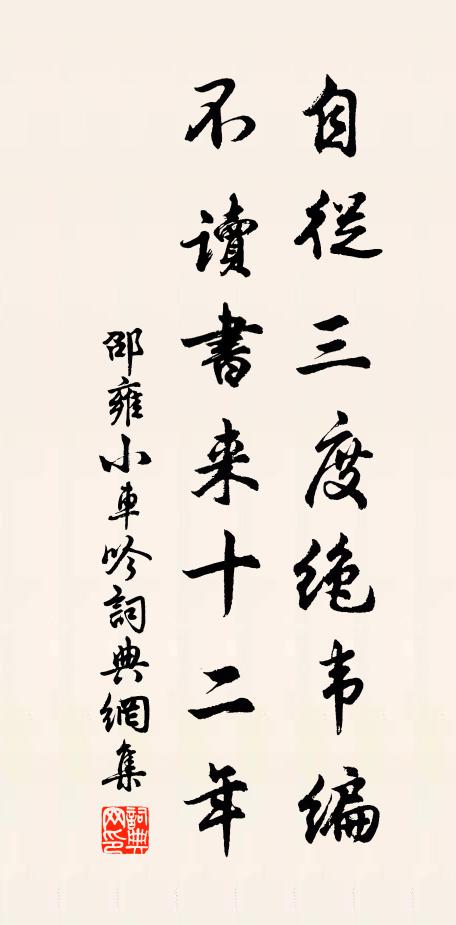 自從三度绝韦编
不讀書来十二年
邵雍小車吟詞典網集
詞典网印